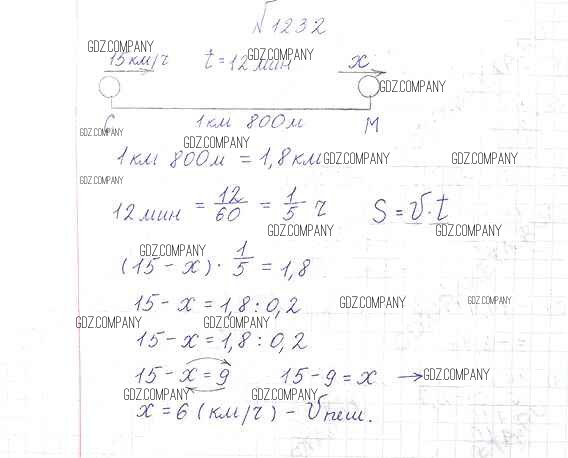 №1232
GDZ.COMPANY GDZ.COMPANY
15 км/ч t = 12 мин x
GDZ.COMPANY
1 км 800 м М
GDZ.COMPANY
GDZ.COMPANY
1 км 800 м = 1,8 км GDZ.COMPANY GDZ.COMPANY
GDZ.COMPANY
12 мин = 12/60 = 1/5 ч S = v · t
GDZ.COMPANY GDZ.COMPANY
GDZ.COMPANY
(15 - x) · 1/5 = 1,8
15 - x = 1,8 : 0,2 GDZ.COMPANY GDZ.COMPANY
GDZ.COMPANY GDZ.COMPANY
15 - x = 1,8 : 0,2
15 - x = 9 15 - 9 = x → GDZ.COMPANY
GDZ.COMPANY GDZ.COMPANY
x = 6 (км/ч) - v пеш.